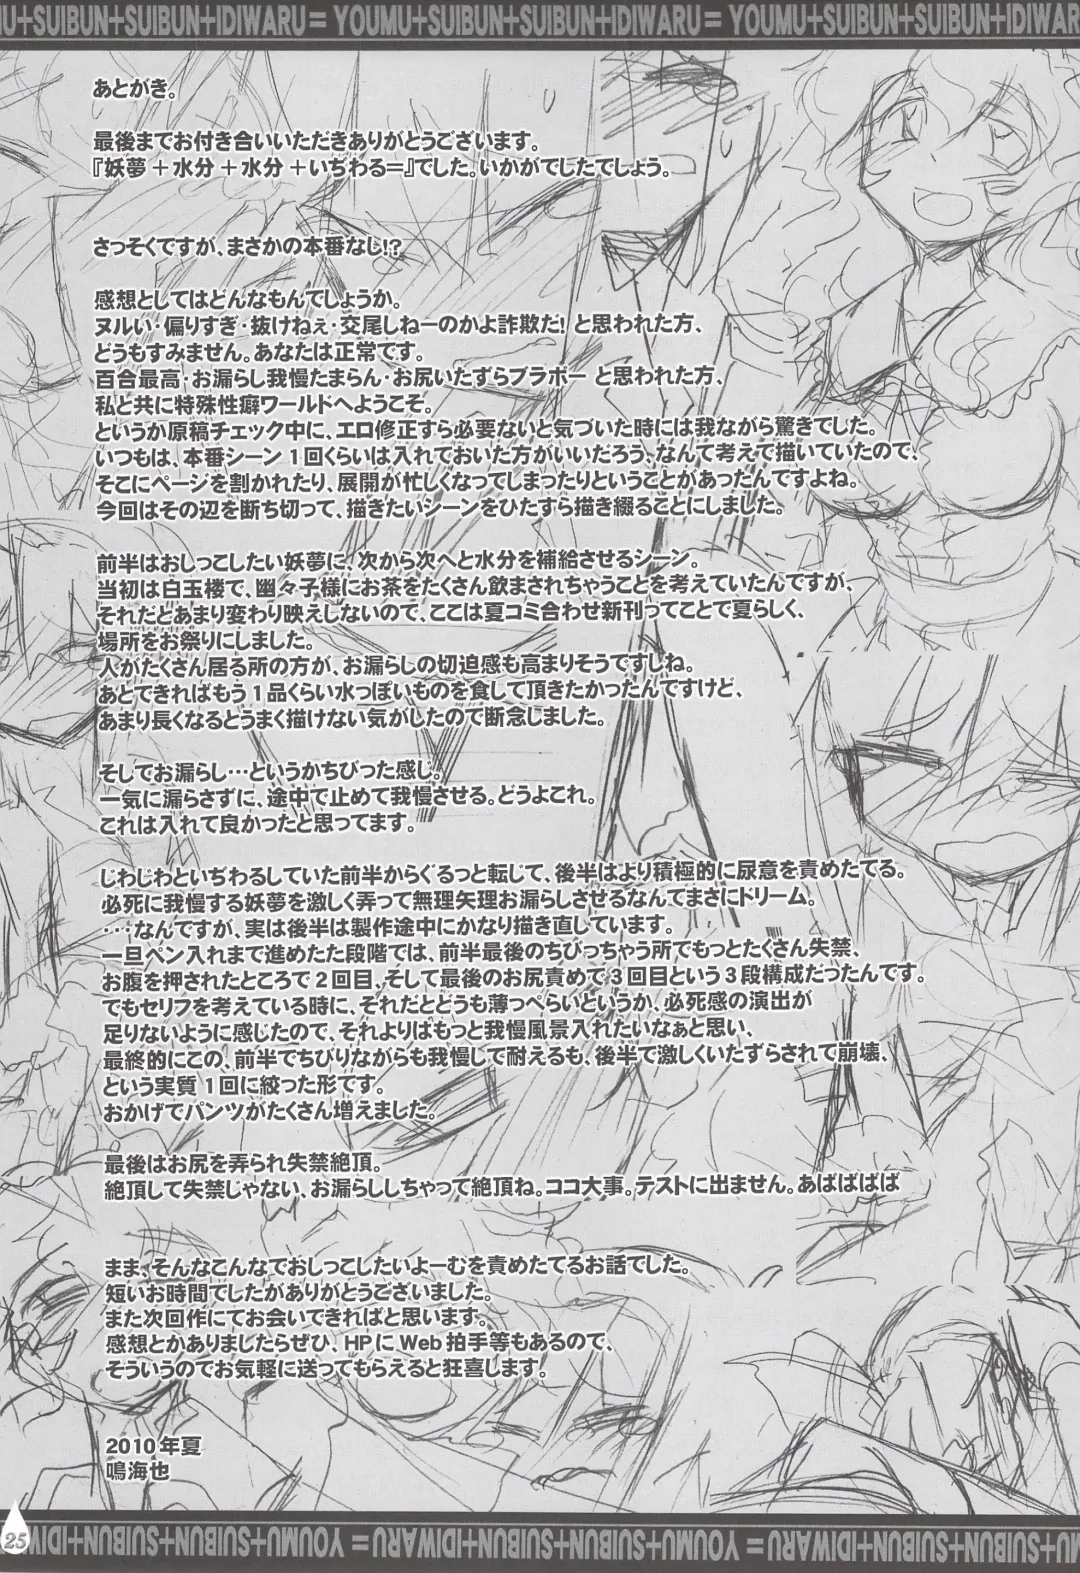 U+SUIBUN+SUIBUN+IDIWARU = YOUMU+SUIBUN+SUIBUN+IDIWARU = YOUMU+SUIBUN+SUIBUN+IDIWARU
あとがき。
最後までお付き合いいただきありがとうございます。
『妖夢＋水分＋水分＋いぢわる＝』でした。いかがでしたでしょう。
さっそくですが、まさかの本番なし!?
感想としてはどんなもんでしょうか。
ヌルい・偏りすぎ・抜けねぇ・交尾しねーのかよ詐欺だ! と思われた方、
どうもすみません。あなたは正常です。
百合最高・お漏らし我慢たまらん・お尻いたずらブラボー と思われた方、
私と共に特殊性癖ワールドへようこそ。
というか原稿チェック中に、エロ修正すら必要ないと気づいた時には我ながら驚きでした。
いつもは、本番シーン１回くらいは入れておいた方がいいだろう、なんて考えて描いていたので、
そこにページを割かれたり、展開が忙しくなってしまったりということがあったんですよね。
今回はその辺を断ち切って、描きたいシーンをひたすら描き綴ることにしました。
前半はおしっこしたい妖夢に、次から次へと水分を補給させるシーン。
当初は白玉楼で、幽々子様にお茶をたくさん飲まされちゃうことを考えていたんですが、
それだとあまり変わり映えしないので、ここは夏コミ合わせ新刊ってことで夏らしく、
場所をお祭りにしました。
人がたくさん居る所の方が、お漏らしの切迫感も高まりそうですしね。
あとできればもう１品くらい水っぽいものを食して頂きたかったんですけど、
あまり長くなるとうまく描けない気がしたので断念しました。
そしてお漏らし…というかちびった感じ。
一気に漏らさずに、途中で止めて我慢させる。どうよこれ。
これは入れて良かったと思ってます。
じわじわといぢわるしていた前半からぐるっと転じて、後半はより積極的に尿意を責めたてる。
必死に我慢する妖夢を激しく弄って無理矢理お漏らしさせるなんてまさにドリーム。
・・・なんですが、実は後半は製作途中にかなり描き直しています。
一旦ペン入れまで進めたた段階では、前半最後のちびっちゃう所でもっとたくさん失禁、
お腹を押されたところで２回目、そして最後のお尻責めで３回目という３段構成だったんです。
でもセリフを考えている時に、それだとどうも薄っぺらいというか、必死感の演出が
足りないように感じたので、それよりはもっと我慢風景入れたいなぁと思い、
最終的にこの、前半でちびりながらも我慢して耐えるも、後半で激しくいたずらされて崩壊、
という実質１回に絞った形です。
おかげでパンツがたくさん増えました。
最後はお尻を弄られ失禁絶頂。
絶頂して失禁じゃない、お漏らししちゃって絶頂ね。ココ大事。テストに出ません。あばばばば
まま、そんなこんなでおしっこしたいよーむを責めたてるお話でした。
短いお時間でしたがありがとうございました。
また次回作にてお会いできればと思います。
感想とかありましたらぜひ、HPにWeb拍手等もあるので、
そういうのでお気軽に送ってもらえると狂喜します。
2010年夏
鳴海也
25
IDIWARU+SUIBUN+SUIBUN+YOUMU = IDIWARU+SUIBUN+SUIBUN+YOUMU = IDIWARU+SUIBUN+SUIBUN+MU